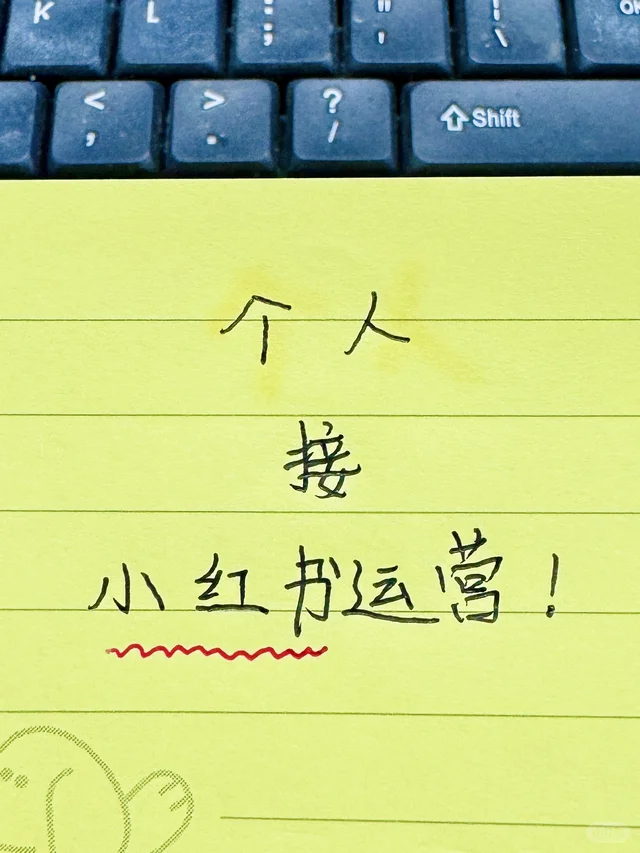 K L : ; " ' | \
< , > . ? / Shift
个人
接
小红书运营！